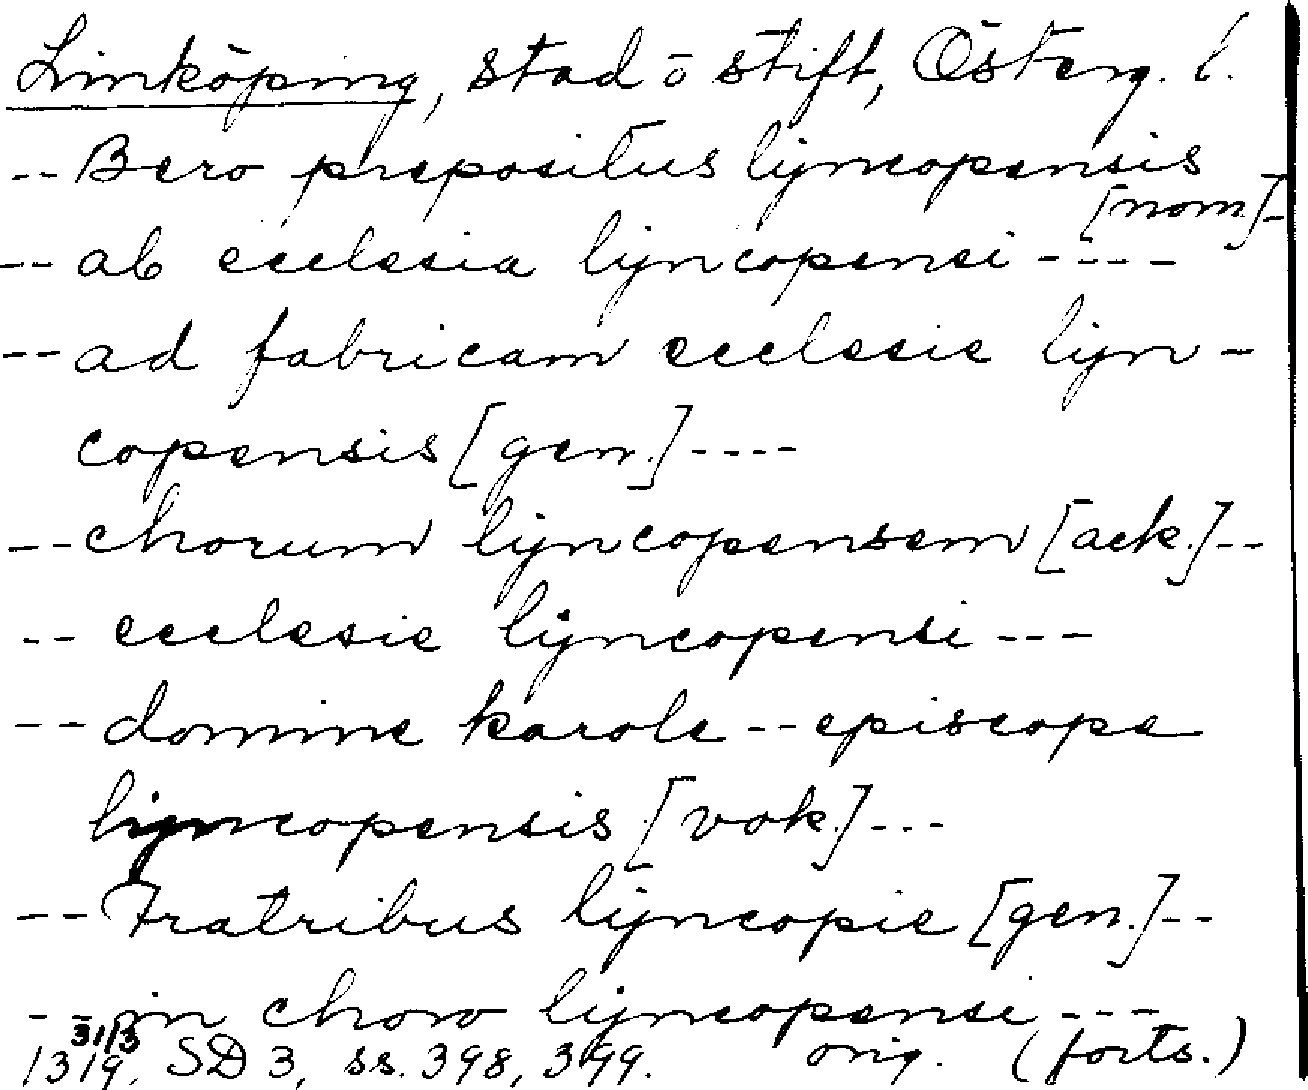 Linköping, stad o stift, Österg. l.
-- Bero prepositus lyncopensis
[nom] -
-- ab ecclesia lyncopensi ----
-- ad fabricam ecclesie lyn-
copensis [gen.] ----
-- chorum lyncopensem [ack.] --
-- ecclesie lyncopensi ---
-- domine karole -- episcope
lyncopensis [vok.] ---
-- Fratribus lyncopie [gen.] --
-- in choro lyncopensi ---
31/3
1319. SD 3, ss. 398, 399. orig. (forts.)